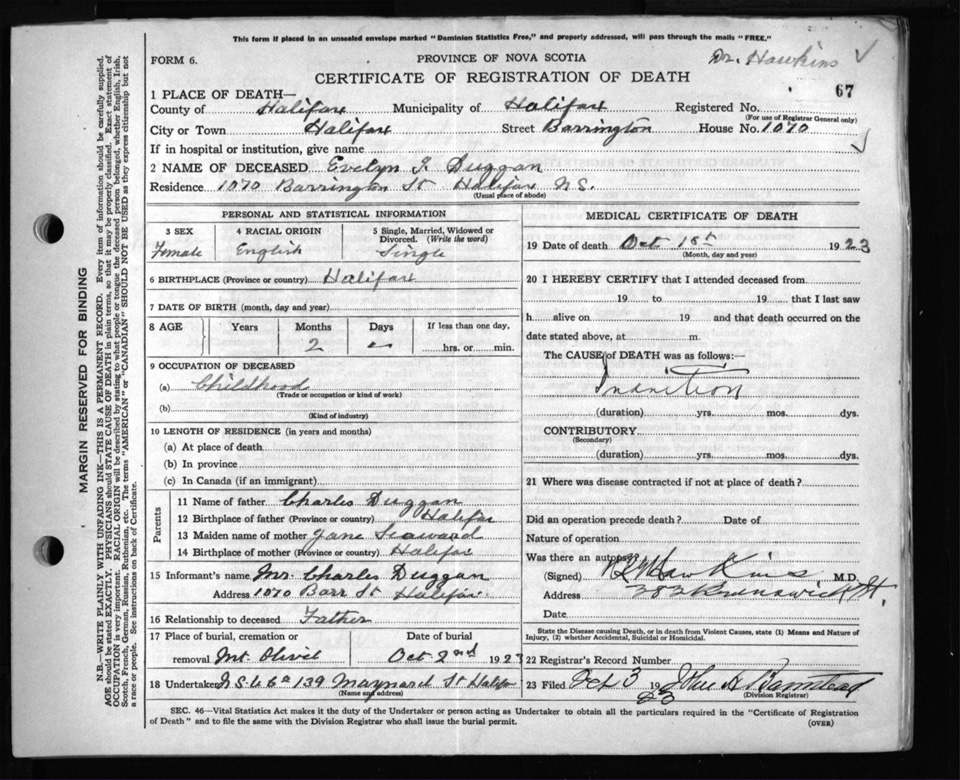 This form if placed in an unsealed envelope marked "Dominion Statistics Free," and properly addressed, will pass through the mails "FREE."
FORM 6.
PROVINCE OF NOVA SCOTIA
Dr. Hawkins
CERTIFICATE OF REGISTRATION OF DEATH
67
1 PLACE OF DEATH—
County of Halifax Municipality of Halifax Registered No.
(For use of Registrar General only)
City or Town Halifax Street Barrington House No. 1070
If in hospital or institution, give name
2 NAME OF DECEASED Evelyn J. Duggan
Residence 1070 Barrington St Halifax N.S.
(Usual place of abode)
PERSONAL AND STATISTICAL INFORMATION
3 SEX 4 RACIAL ORIGIN 5 Single, Married, Widowed or Divorced. (Write the word)
Female English Single
6 BIRTHPLACE (Province or country) Halifax
7 DATE OF BIRTH (month, day and year)
8 AGE Years Months Days If less than one day,
2 hrs. or min.
9 OCCUPATION OF DECEASED
(a) Childhood
(Trade or occupation or kind of work)
(b)
(Kind of industry)
10 LENGTH OF RESIDENCE (in years and months)
(a) At place of death
(b) In province
(c) In Canada (if an immigrant)
Parents
11 Name of father Charles Duggan
12 Birthplace of father (Province or country) Halifax
13 Maiden name of mother Jane Seaward
14 Birthplace of mother (Province or country) Halifax
15 Informant's name Mr. Charles Duggan
Address 1070 Barr St Halifax
16 Relationship to deceased Father
17 Place of burial, cremation or Date of burial
removal Mt Olivit Oct 2nd 1923
18 Undertaker 139 Maynard St Halifax
(Name and address)
MEDICAL CERTIFICATE OF DEATH
19 Date of death Oct 1st 1923
(Month, day and year)
20 I HEREBY CERTIFY that I attended deceased from
19 to 19 that I last saw
h alive on 19 and that death occurred on the
date stated above, at m.
The CAUSE of DEATH was as follows:—
Inanition
(duration) yrs. mos. dys.
CONTRIBUTORY
(Secondary)
(duration) yrs. mos. dys.
21 Where was disease contracted if not at place of death?
Did an operation precede death? Date of
Nature of operation
Was there an autopsy
(Signed) Hawkins M.D.
Address 282 Brunswick St.
Date
State the Disease causing Death, or in death from Violent Causes, state (1) Means and Nature of
Injury, (2) whether Accidental, Suicidal or Homicidal.
22 Registrar's Record Number
23 Filed Oct 3 1923 John A
(Division Registrar)
SEC. 46—Vital Statistics Act makes it the duty of the Undertaker or person acting as Undertaker to obtain all the particulars required in the "Certificate of Registration
of Death" and to file the same with the Division Registrar who shall issue the burial permit.
(OVER)
MARGIN RESERVED FOR BINDING
N.B.—WRITE PLAINLY WITH UNFADING INK—THIS IS A PERMANENT RECORD. Every item of information should be carefully supplied.
AGE should be stated EXACTLY. PHYSICIANS should STATE CAUSE OF DEATH in plain terms, so that it may be properly classified. Exact statement of
OCCUPATION is very important. RACIAL ORIGIN will be described by stating to what people or tongue the deceased person belonged, whether English, Irish,
Scotch, French, German, Russian, Ruthenian, etc. The terms "AMERICAN" or "CANADIAN" SHOULD NOT BE USED as they express citizenship but not
a race or people. See instructions on back of Certificate.